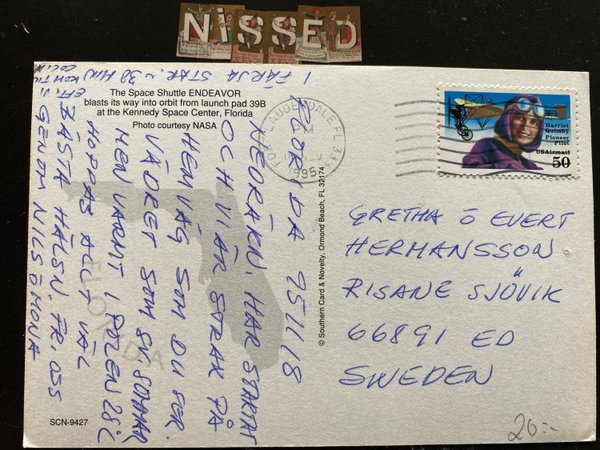 NiSSED
The Space Shuttle ENDEAVOR
blasts its way into orbit from launch pad 39B
at the Kennedy Space Center, Florida
Photo courtesy NASA
FLORIDA 951118
HAR STARTAT
OCH VI ÄR STRAX PÅ
HEMVÄG SOM DU FÖR.
VÄDRET SOM SV SOMMAR
MEN VARMT I POLEN 28°C
HOPPAS ALLT VÄL
BÄSTA HÄLSN. FR. OSS
GENOM NILS O MONA
I FÄRJA STAR
FLORIDA
SCN-9427
© Southern Card & Novelty, Ormond Beach, FL 32174
FORT LAUDERDALE FL 333
PM
1995
Harriet
Quimby
Pioneer
Pilot
USAirmail
50
GRETHA O EVERT
HERMANSSON
RISANE SJÖVIK
66891 ED
SWEDEN
20:-